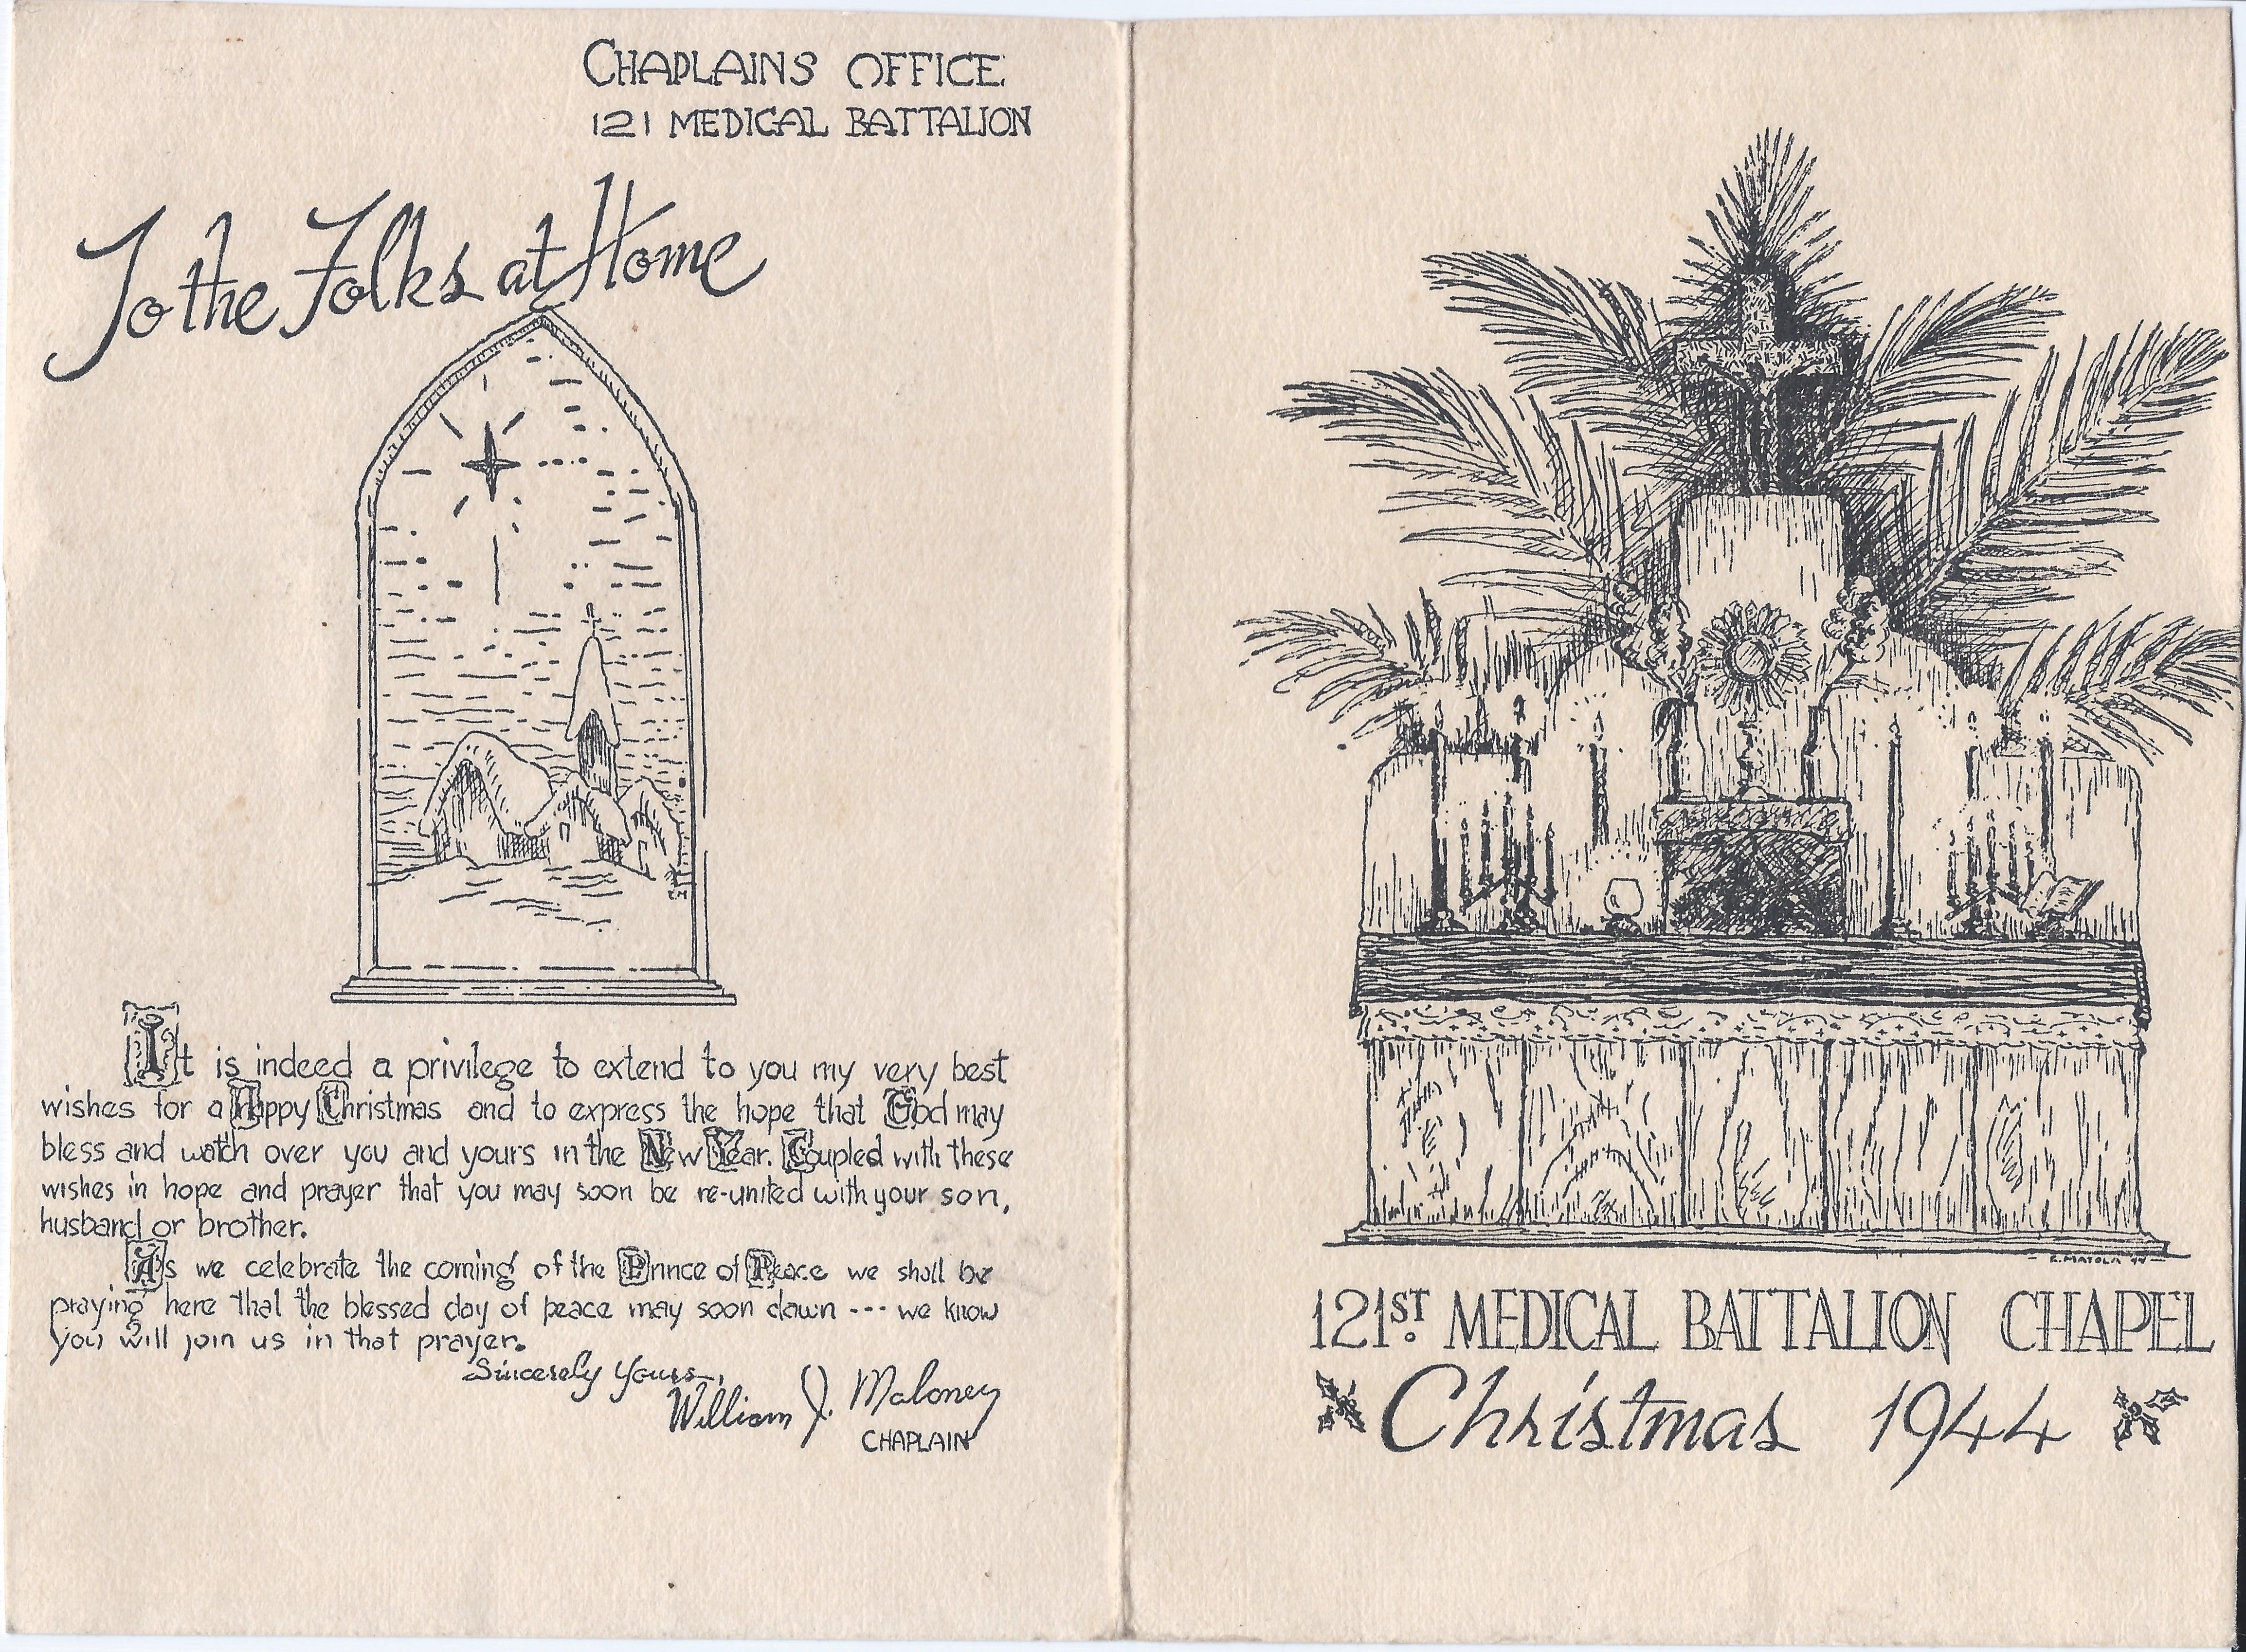 CHAPLAINS OFFICE
121 MEDICAL BATTALION
To the Folks at Home
It is indeed a privilege to extend to you my very best
wishes for a Happy Christmas and to express the hope that God may
bless and watch over you and yours in the New Year. Coupled with these
wishes in hope and prayer that you may soon be re-united with your son,
husband or brother.
As we celebrate the coming of the Prince of Peace we shall be
praying here that the blessed day of peace may soon dawn --- we know
you will join us in that prayer.
Sincerely Yours,
William J. Maloney
CHAPLAIN
E.M.
E. MATOLA '44
121ST. MEDICAL BATTALION CHAPEL
Christmas 1944